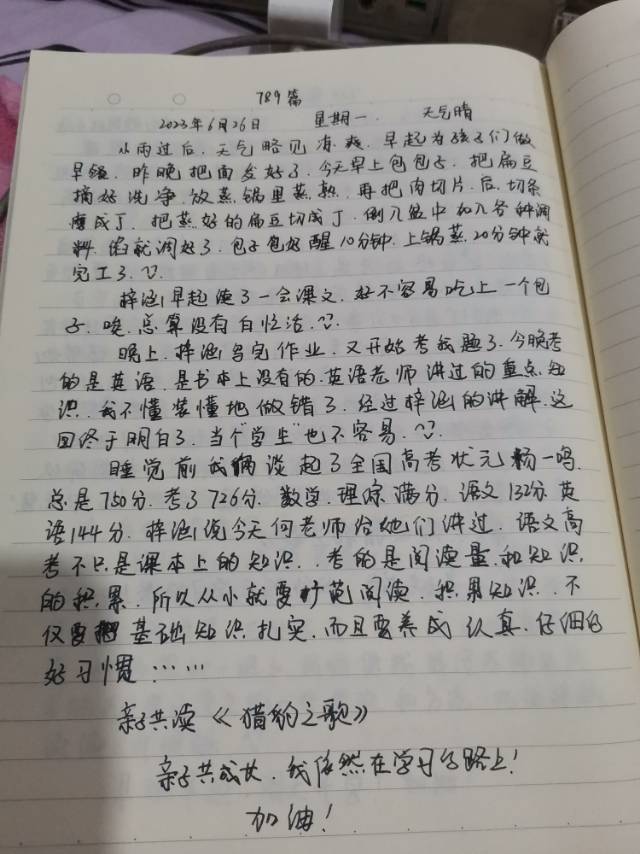 789篇
2023年6月26日 星期一. 天气晴
小雨过后.天气略见清爽.早起为孩子们做
早餐.昨晚把面发好了.今天早上包包子.把扁豆
摘好洗净.放蒸锅里蒸熟.再把肉切片.后.切条
成丁.把蒸好的扁豆切成丁.倒入盆中加入各种调
料.馅就调好了.包子包好醒10分钟.上锅蒸.20分钟就
完工了.
梓涵早起读了一会课文.好不容易吃上一个包
子.唉.总算没有白忙活.
晚上.梓涵写完作业.又开始考我题了.今晚考
的是英语.是书本上没有的.英语老师讲过的重点知
识.我不懂装懂地做错了.经过梓涵的讲解.这
回终于明白了.当个"学生"也不容易.
睡觉前我俩谈起了全国高考状元杨一鸣.
总是750分.考了726分.数学.理综满分.语文132分.英
语144分.梓涵说今天何老师给他们讲过.语文高
考不只是课本上的知识.考的是阅读量和知识
的积累.所以从小就要扩范阅读.积累知识.不
仅要把基础知识扎实.而且要养成认真.仔细的
好习惯……
亲子共读《猎豹之歌》
亲子共成长.我依然在学习的路上!
加油!